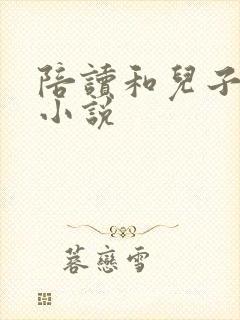 陪讀和兒子
小說
蒼戀雪